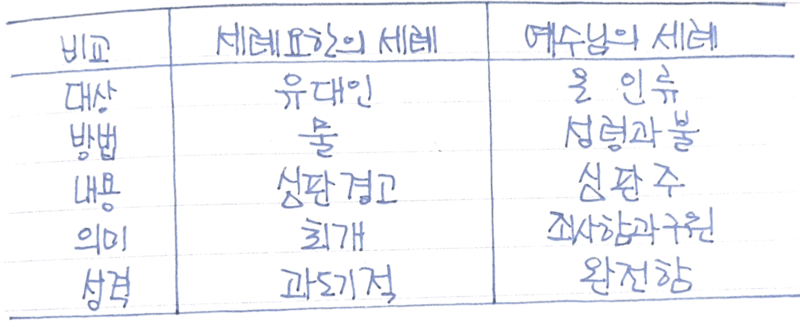 비교 세례요한의 세례 예수님의 세례
대상 유대인 온 인류
방법 물 성령과 불
내용 심판경고 심판주
의미 회개 죄사함과 구원
성격 과도기적 완전함